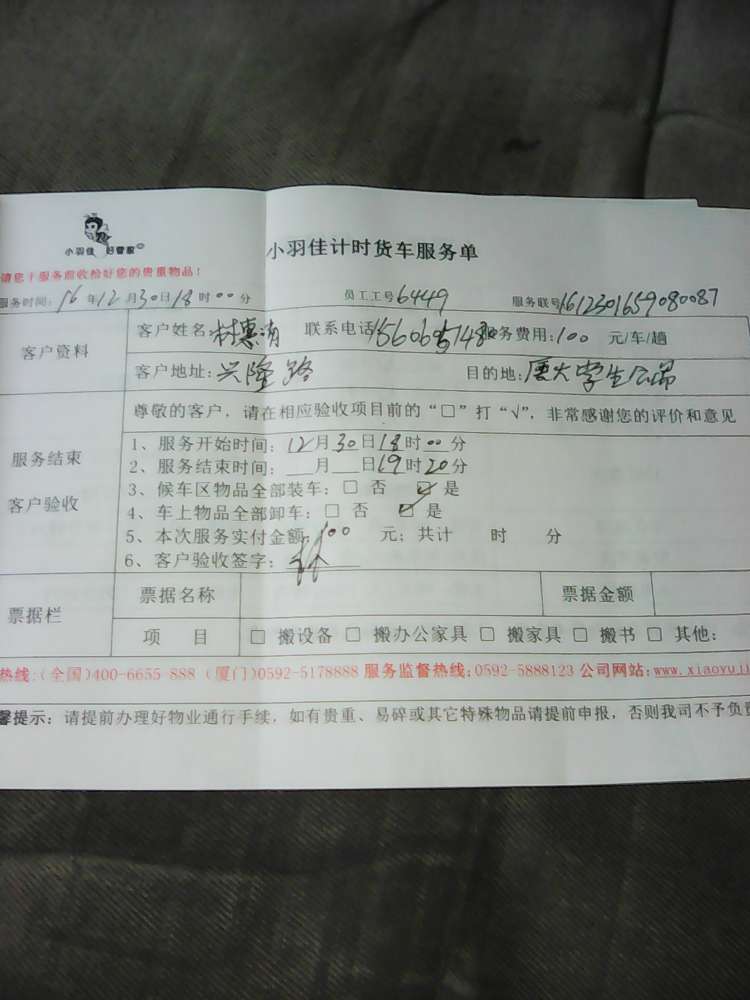 小羽佳 好管家
小羽佳计时货车服务单
请您于服务前收检好您的贵重物品！
服务时间：16年12月30日18时00分 员工工号6449 服务联号1612301659080087
客户资料
客户姓名： 联系电话 服务费用：100 元/车/趟
客户地址：兴隆路 目的地：厦大学生公寓
服务结束
客户验收
尊敬的客户，请在相应验收项目前的“□”打“√”，非常感谢您的评价和意见
1、服务开始时间：12月30日18时00分
2、服务结束时间：___月___日19时20分
3、候车区物品全部装车：□ 否 ☑ 是
4、车上物品全部卸车：□ 否 ☑ 是
5、本次服务实付金额：100 元；共计 时 分
6、客户验收签字：林
票据栏
票据名称 票据金额
项 目 □ 搬设备 □ 搬办公家具 □ 搬家具 □ 搬书 □ 其他：
热线：（全国）400-6655-888（厦门）0592-5178888 服务监督热线：0592-5888123 公司网站：www.xiaoyuji
馨提示：请提前办理好物业通行手续，如有贵重、易碎或其它特殊物品请提前申报，否则我司不予负责